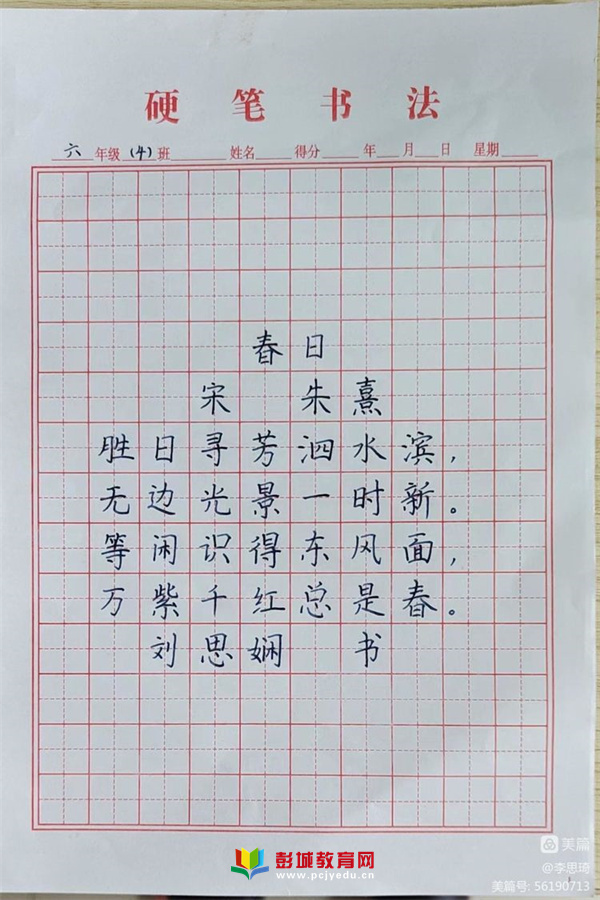 硬笔书法
六年级(4)班 姓名 得分 年 月 日 星期
春日
宋 朱熹
胜日寻芳泗水滨,
无边光景一时新。
等闲识得东风面,
万紫千红总是春。
刘思娴 书
美篇
@李思琦
美篇号: 56190713
彭城教育网
www.pcjyedu.cn